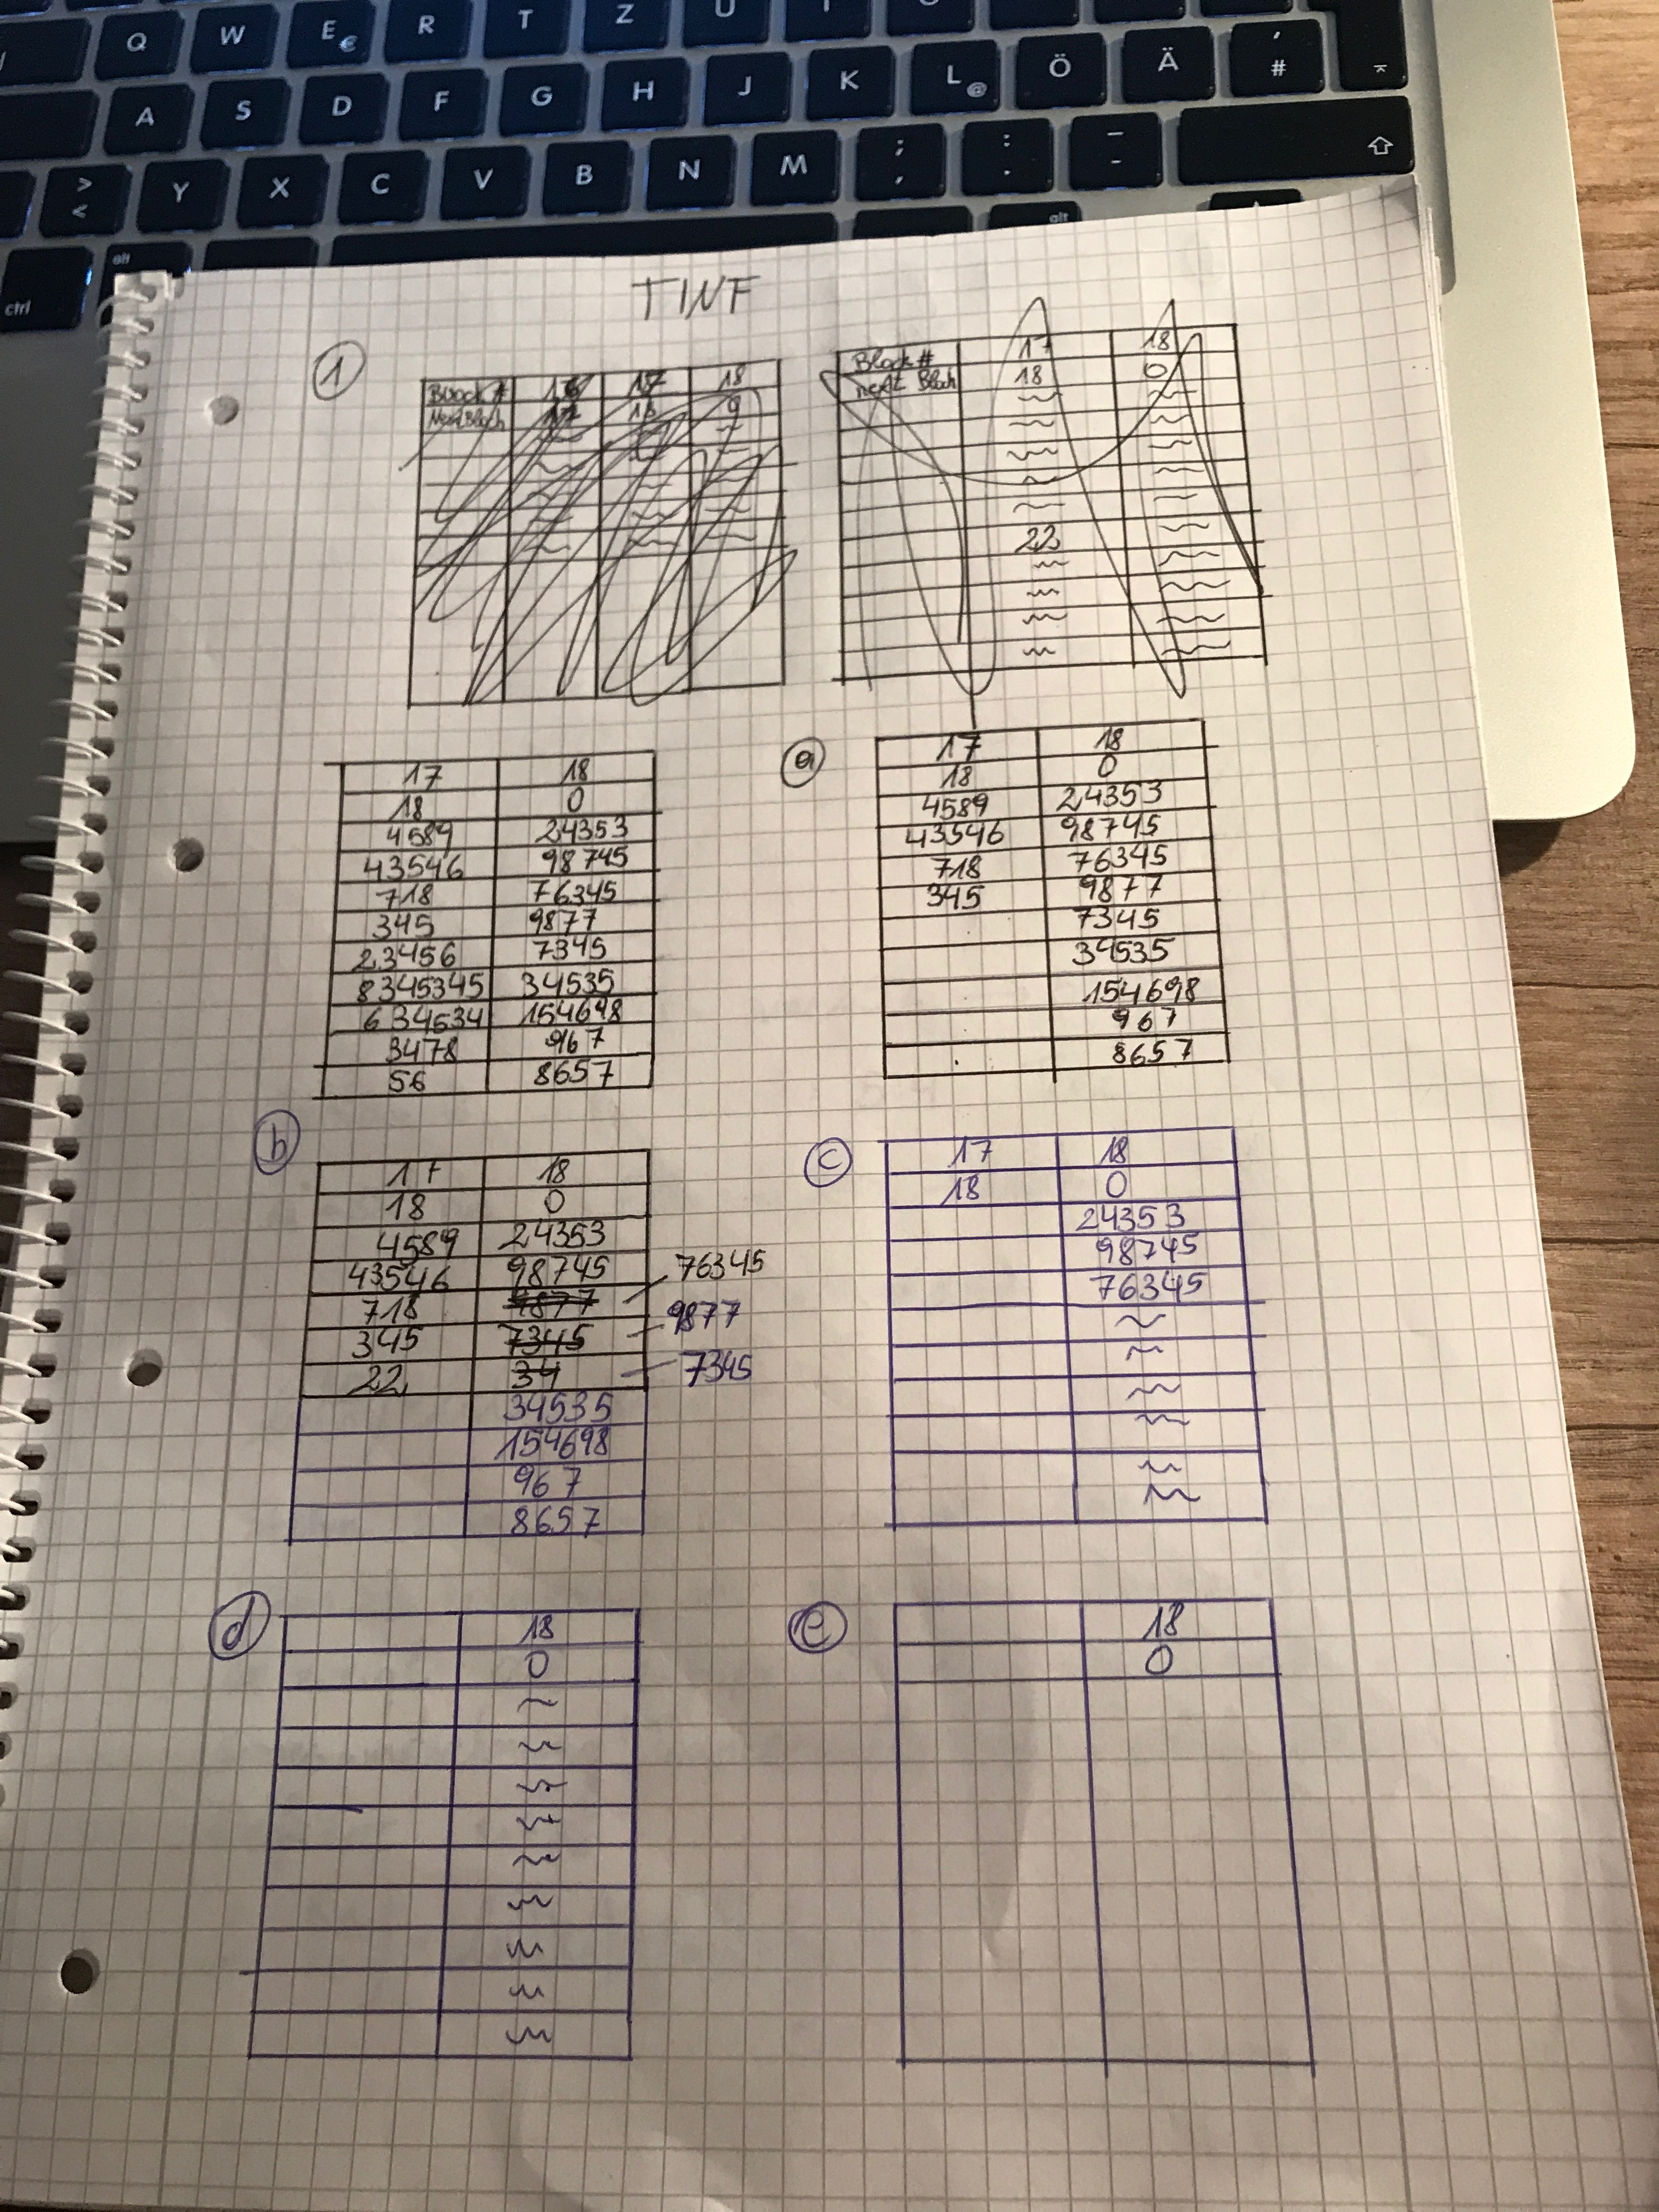 Q W E € R T Z U
A S D F G H J K L @ Ö Ä ' #
> < Y X C V B N M ; , : . _ -
ctrl alt alt
TINF
1
Block # 16 17 18
Next Block 17 18
Block # 17 18
next Block 18 0
22
17 18
18 0
4589 24353
43546 98745
718 76345
345 9877
23456 7345
8345345 34535
634534 154698
3478 967
56 8657
a
17 18
18 0
4589 24353
43546 98745
718 76345
345 9877
7345
34535
154698
967
8657
b
17 18
18 0
4589 24353
43546 98745
718 9877 76345
345 7345 9877
22 34 7345
34535
154698
967
8657
c
17 18
18 0
24353
98745
76345
d
18
0
e
18
0